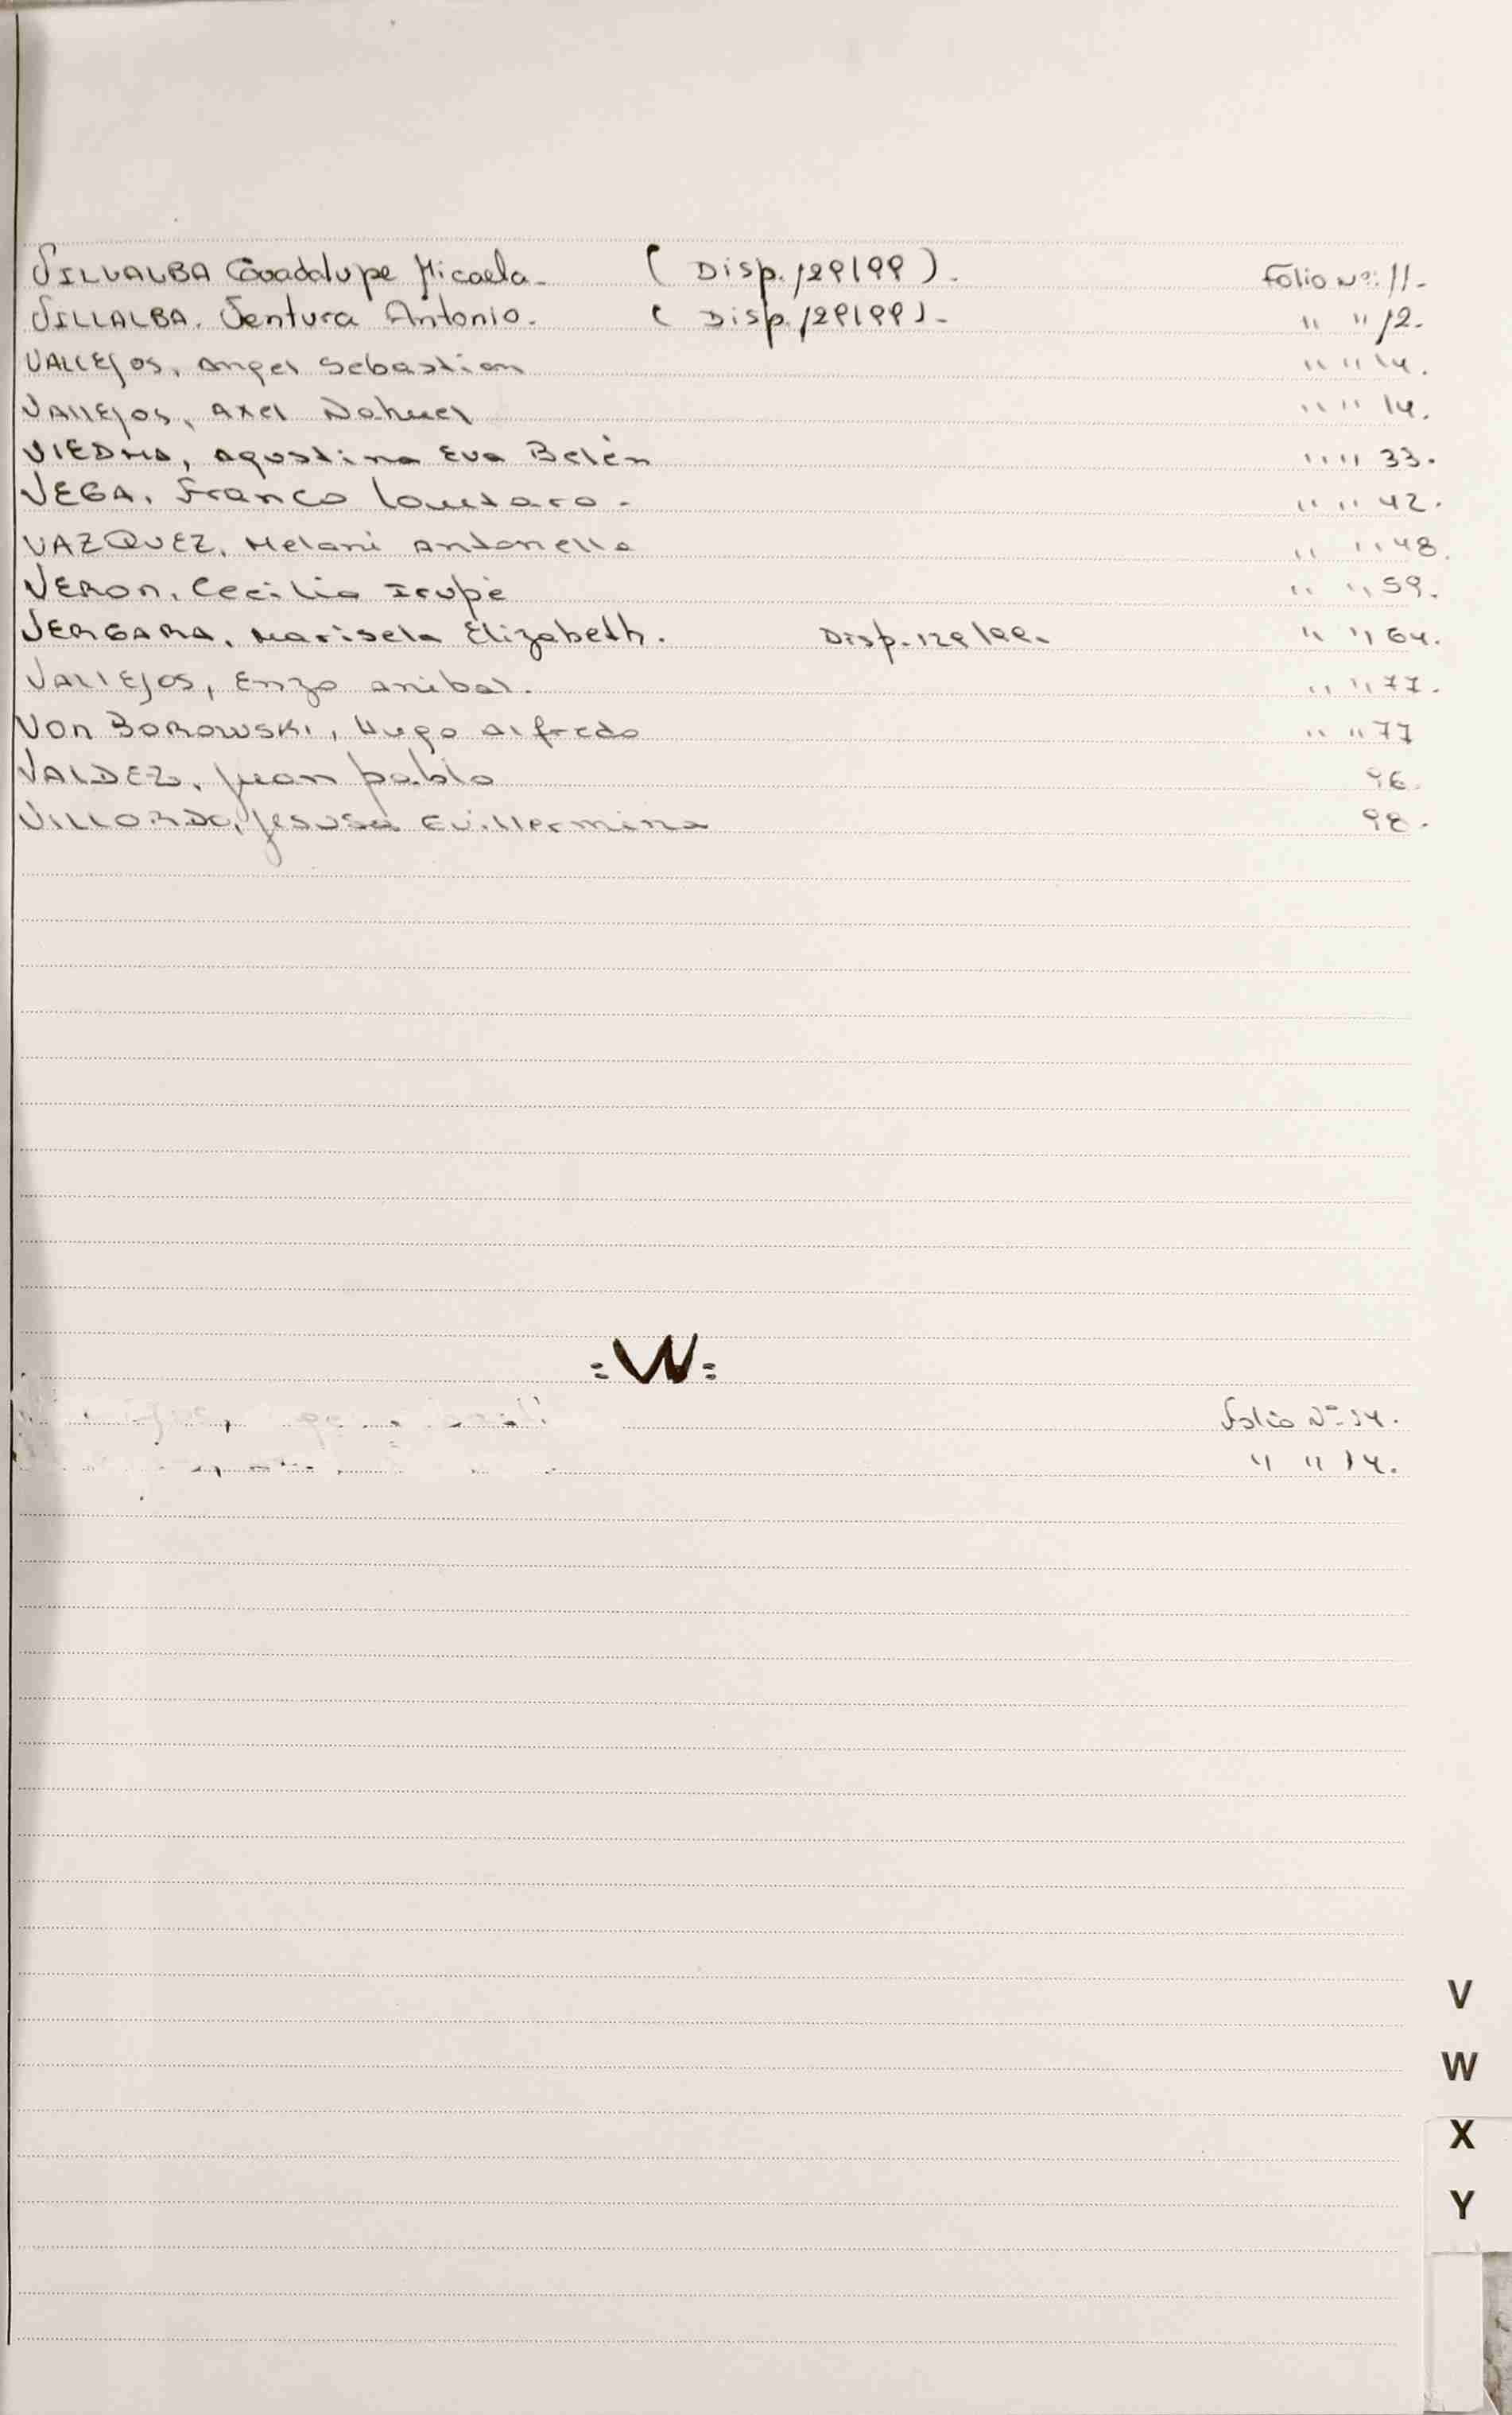 VILLALBA Guadalupe Micaela- ( Disp. 129/99 ). Folio Nº: 11.
VILLALBA. Ventura Antonio. ( Disp. 129/99 ). " " 12.
VALLEJOS, Angel Sebastian " " 14.
VALLEJOS, Axel Nahuel " " 14.
VIEDMA, Agustina Eva Belén " " 33.
VEGA, Franco Lautaro. " " 42.
VAZQUEZ, Melani Antonella " " 48.
VERON, Cecilia Irupé " " 59.
VERGARA, Marisela Elizabeth. Disp. 129/99. " " 64.
VALLEJOS, Enzo Anibal. " " 77.
VON BOROWSKI, Hugo Alfredo " " 77
VALDEZ, Juan Pablo 96.
VILLORDO, Jesusa Guillermina 98.
=W=
Folio Nº 14.
" " 14.
V
W
X
Y